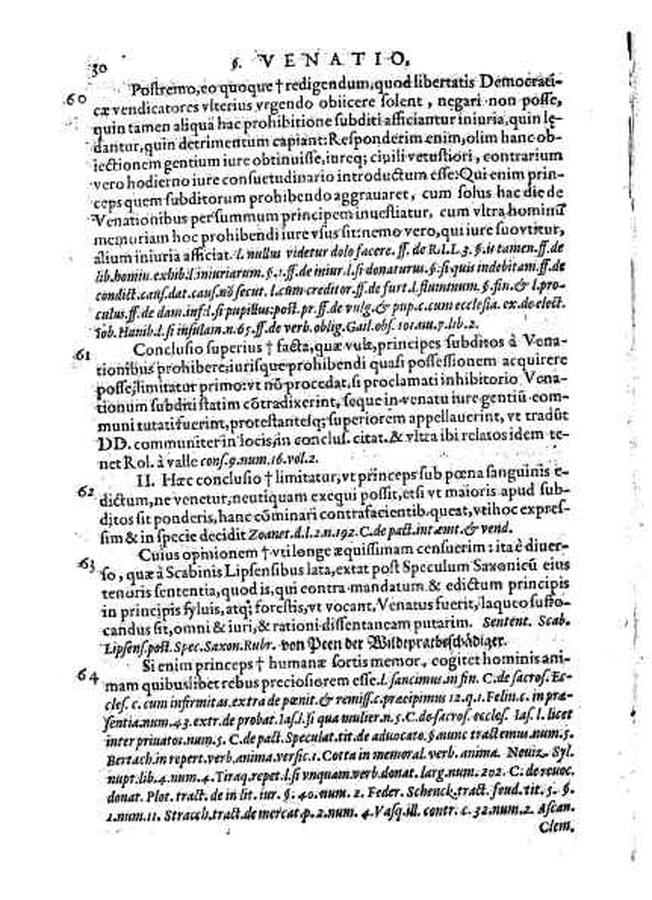 30 §. VENATIO.
60 Postremo, eo quoque † redigendum, quod libertatis Democrati-
cæ vendicatores vlterius vrgendo obiicere solent, negari non posse,
quin tamen aliquā hac prohibitione subditi afficiantur iniuria, quin lę-
dantur, quin detrimentum capiant: Responderim enim, olim hanc ob-
iectionem gentium iure obtinuisse, iureq; ciuili vetustiori, contrarium
vero hodierno iure consuetudinario introductum esse: Qui enim prin-
ceps quem subditorum prohibendo aggrauaret, cum solus hac die de
Venationibus per summum principem inuestiatur, cum vltra hominū
memoriam hoc prohibendi iure vsus sit: nemo vero, qui iure suo vtitur,
alium iniuria afficiat. l. nullus videtur dolo facere. ff. de R.I. L. 3. §. is tamen. ff. de
lib. homin. exhib. l. iniuriarum. §. 1. ff. de iniur. l. si donaturus. §. si quis indebitam. ff. de
condict. caus. dat. caus. nō secut. l. cum creditor. ff. de furt. l. fluminum. §. fin. & l. pro-
culus. ff. de dam. inf. l. si pupillus. post. pr. ff. de vulg. & pup. c. cum ecclesia. ex. de elect.
Iob. Hanib. l. si insulam. n. 65. ff. de verb. oblig. Gail. obs. 101. nu. 7. lib. 2.
61 Conclusio superius † facta, quæ vult, principes subditos à Vena-
tionibus prohibere, iurisque prohibendi quasi possessionem acquirere
posse, limitatur primo: vt nō procedat, si proclamati inhibitorio Vena-
tionum subditi statim cōtradixerint, seque in venatu iure gentiū com-
muni tutati fuerint, protestantesq; superiorem appellauerint, vt tradūt
DD. communiter in locis, in conclus. citat. & vltra ibi relatos idem te-
net Rol. à valle cons. 9. num. 16. vol. 2.
62 II. Hæc conclusio † limitatur, vt princeps sub pœna sanguinis e-
dictum, ne venetur, neutiquam exequi possit, etsi vt maioris apud sub-
ditos sit ponderis, hanc cōminari contrafacientib. queat, vti hoc expres-
sim & in specie decidit Zoanet. d. l. 2. n. 192. C. de pact. int. emt. & vend.
63 Cuius opinionem † vti longe æquissimam censuerim: ita è diuer-
so, quæ à Scabinis Lipsensibus lata, extat post Speculum Saxonicū eius
tenoris sententia, quod is, qui contra mandatum & edictum principis
in principis syluis, atq; forestis, vt vocant, Venatus fuerit, laqueo suffo-
candus sit, omni & iuri, & rationi dissentaneam putarim. Sentent. Scab.
Lipsens. post. Spec. Saxon. Rubr. von Peen der Wildepratbeschädiger.
64 Si enim princeps † humanæ sortis memor, cogitet hominis ani-
mam quibuslibet rebus preciosiorem esse. l. sancimus. in fin. C. de sacros. Ec-
cles. c. cum infirmitas. extra de pœnit. & remiss. c. præcipimus 12. q. 1. Felin. c. in præ-
sentia. num. 43. extr. de probat. Ias. l. si qua mulier. n. 5. C. de sacros. eccles. Ias. l. licet
inter priuatos. num. 5. C. de pact. Speculat. tit. de aduocato. § nunc tractemus. num. 5.
Bertach. in repert. verb. anima. versic. 1. Cotta in memoral. verb. anima. Neuiz. Syl.
nupt. lib. 4. num. 4. Tiraq. repet. l. si vnquam. verb. donat. larg. num. 202. C. de reuoc.
donat. Plot. tract. de in lit. iur. §. 40. num. 2. Feder. Schenck. tract. feud. tit. 5. §.
1. num. 11. Stracch. tract. de mercat. p. 2. num. 4. Vasq. ill. contr. c. 32. num. 2. Ascan.
Clem.